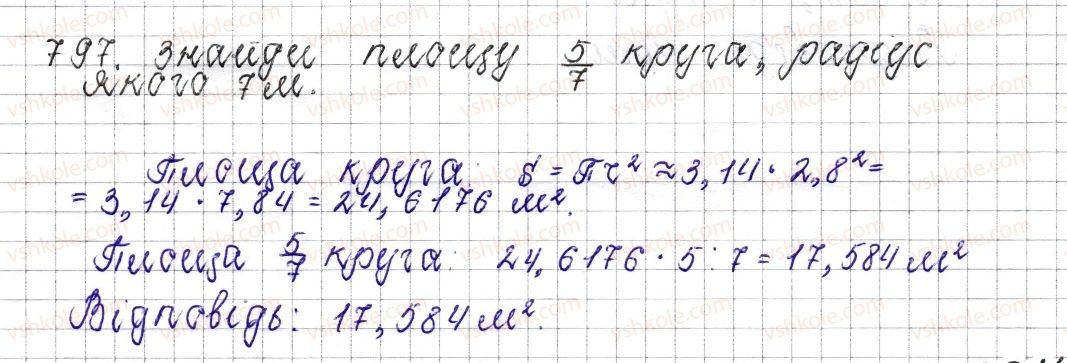 797. Знайди площу 5/7 круга, радіус
якого 7 м.
Площа круга: S = Пr² ≈ 3,14 · 2,8² =
= 3,14 · 7,84 = 24,6176 м².
Площа 5/7 круга: 24,6176 · 5 : 7 = 17,584 м²
Відповідь: 17,584 м².